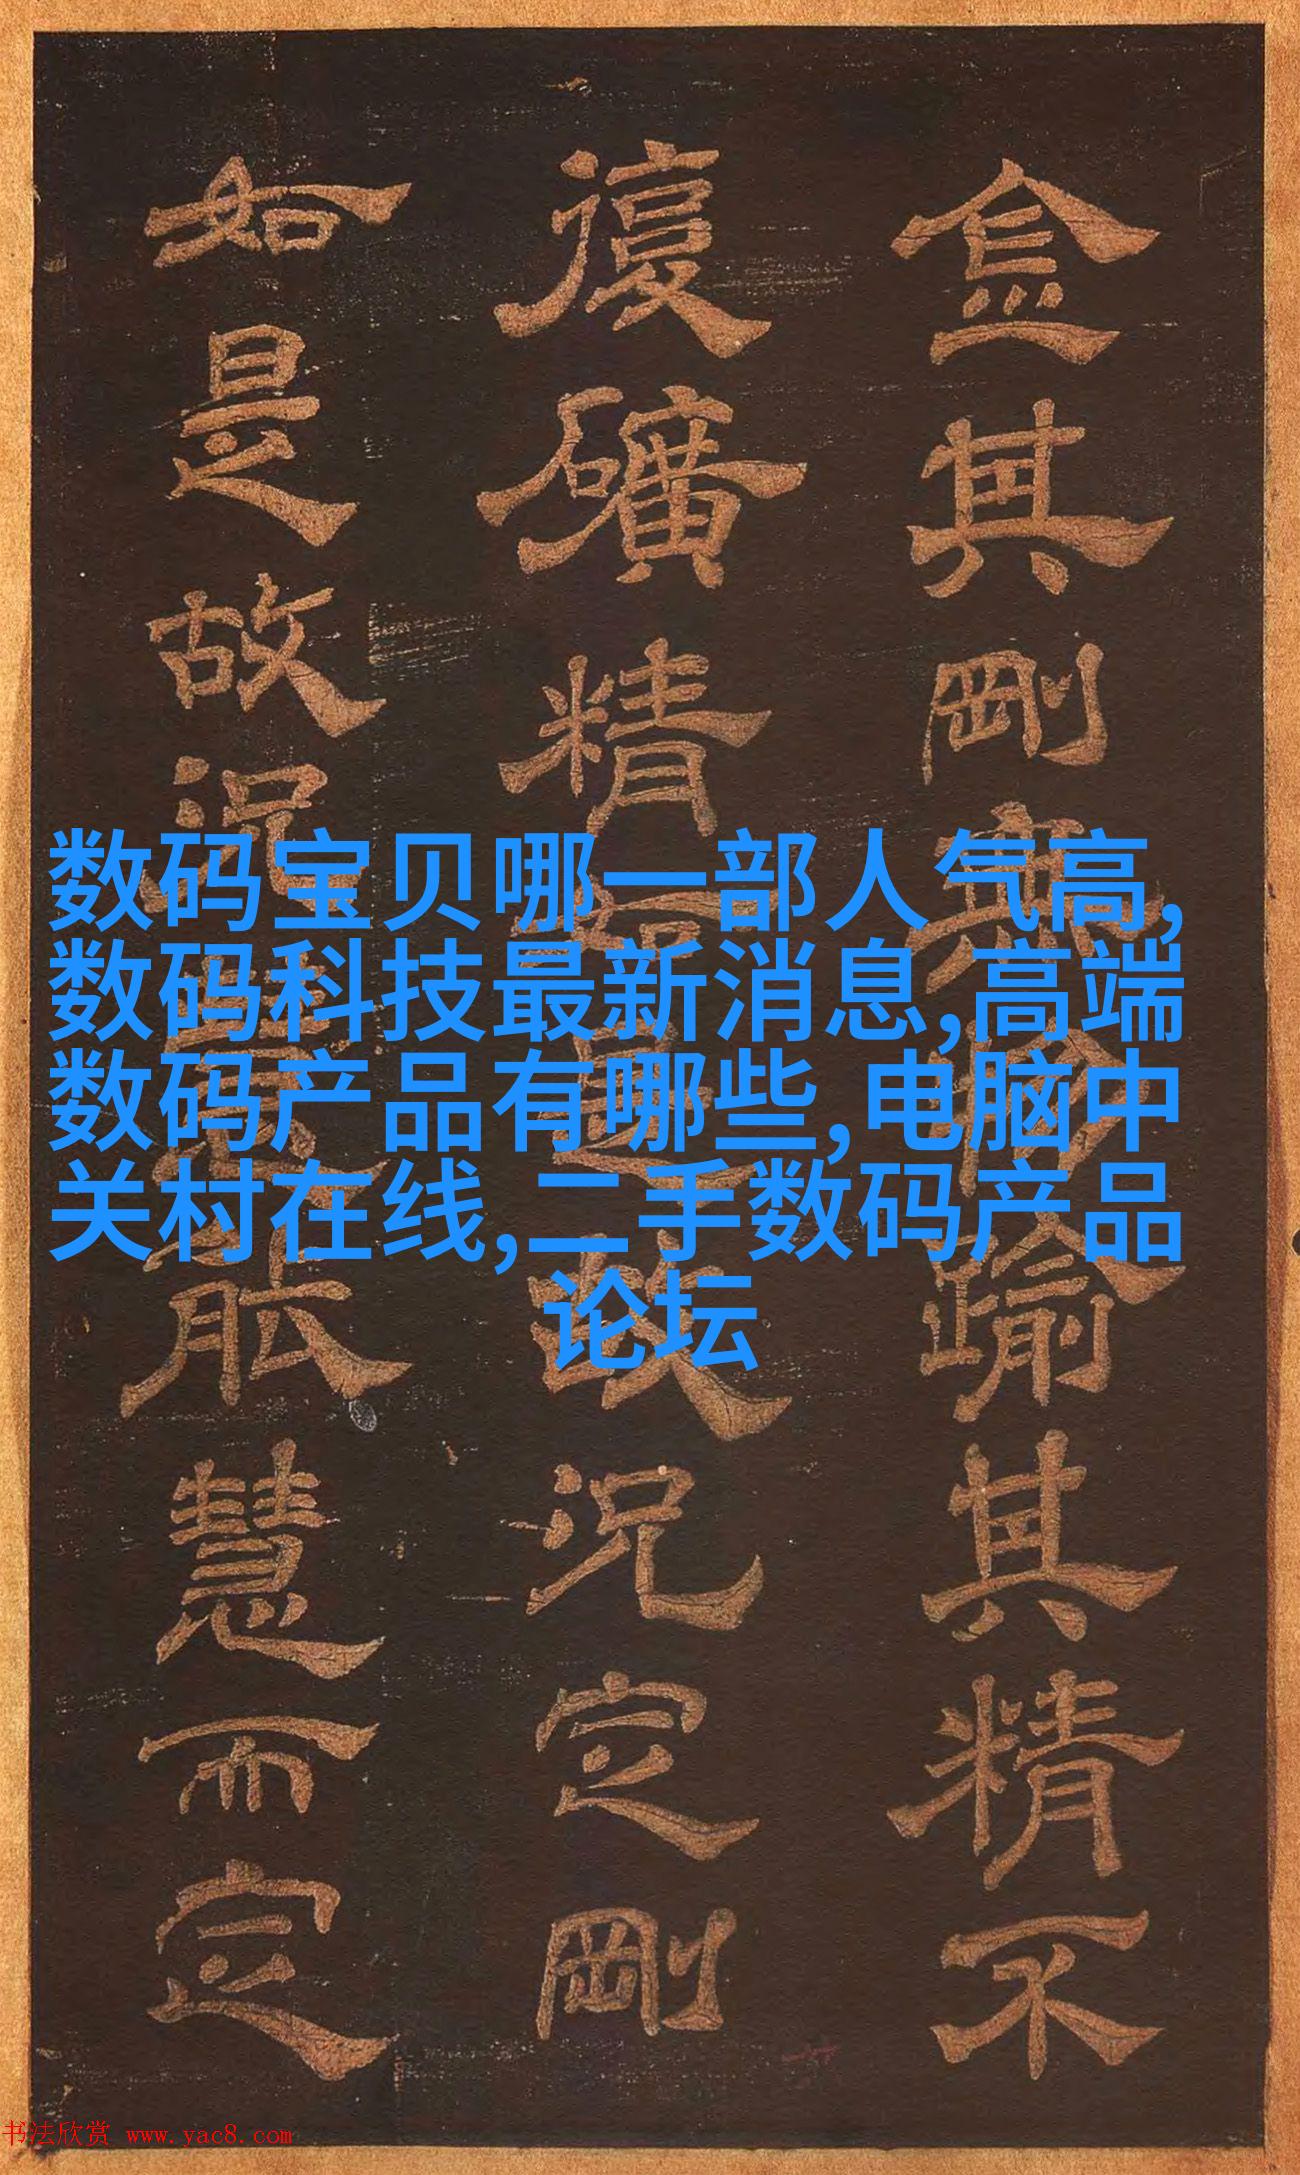 金其剛亦喻其精不
復礦精
故況定剛
如是故況
能慧而定
数码宝贝哪一部人气高,
数码科技最新消息,高端
数码产品有哪些,电脑中
关村在线,二手数码产品
论坛
书法欣赏 www.yac8.com